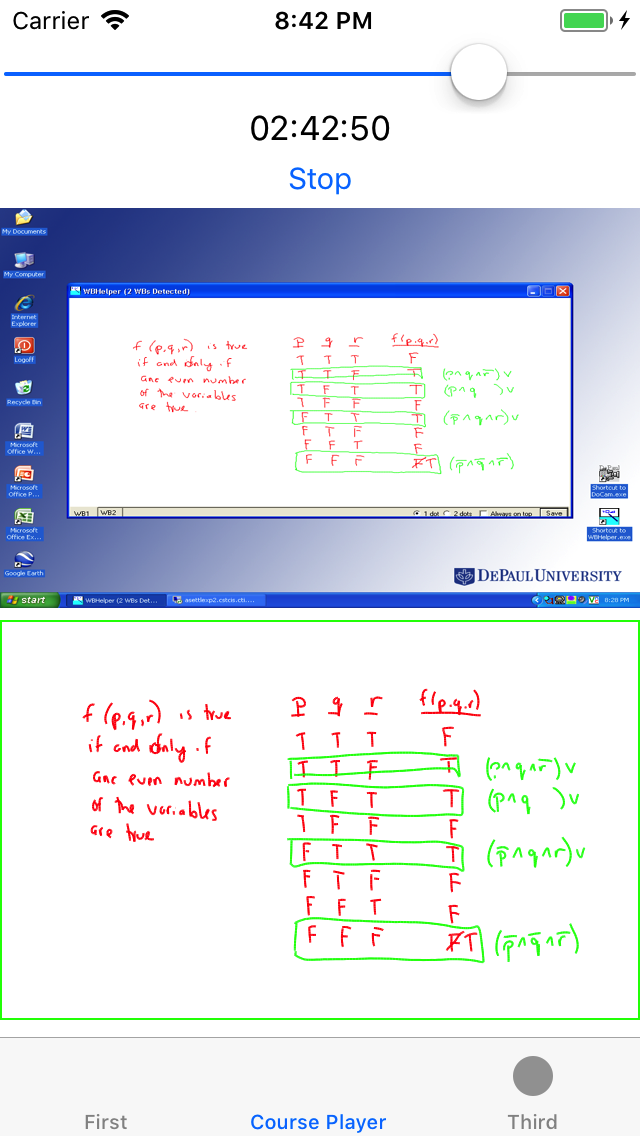 Carrier 8:42 PM
02:42:50
Stop
My Documents
My Computer
Internet Explorer
Logoff
Recycle Bin
Microsoft Office W...
Microsoft Office P...
Microsoft Office Ex...
Google Earth
WBHelper (2 WBs Detected)
f (p,q,r) is true
if and only if
an even number
of the variables
are true
p q r f(p,q,r)
T T T F
T T F T (p∧q∧r̅)∨
T F T T (p∧q )∨
T F F F
F T T T (p̅∧q∧r)∨
F T F F
F F T F
F F F F T (p̅∧q̅∧r̅)
WB1 WB2 1 dot 2 dots Always on top Save
Shortcut to DoCam.exe
Shortcut to WBHelper.exe
DEPAUL UNIVERSITY
start WBHelper (2 WBs Det... asettlexp2.cstcis.cti.... 8:20 PM
f (p,q,r) is true
if and only if
an even number
of the variables
are true
p q r f(p,q,r)
T T T F
T T F T (p∧q∧r̅)∨
T F T T (p∧q )∨
T F F F
F T T T (p̅∧q∧r)∨
F T F F
F F T F
F F F F T (p̅∧q̅∧r̅)
First Course Player Third